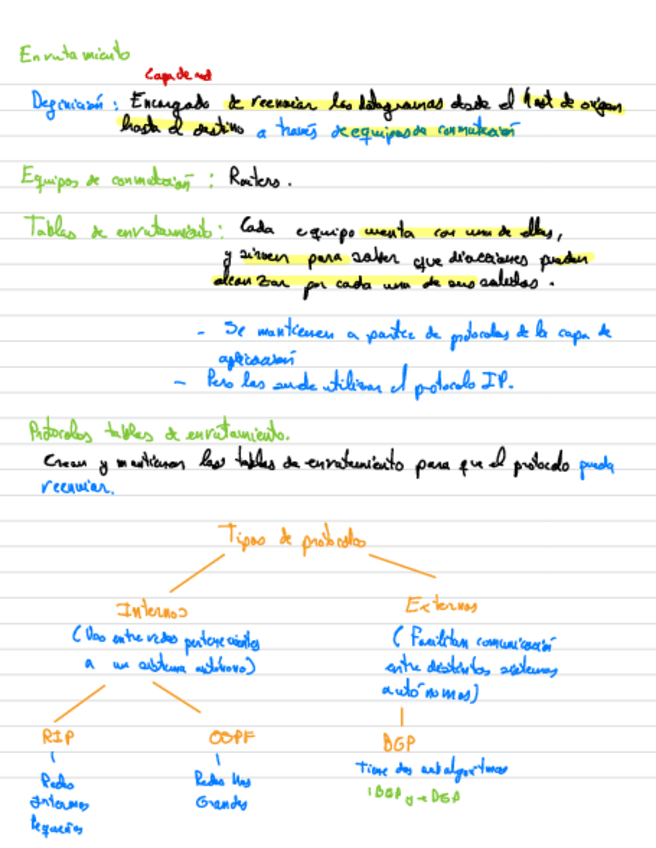 Enrutamiento
Capa de red
Definición: Encargado de reenviar los datagramas desde el host de origen
hasta el destino a través de equipos de conmutación
Equipos de conmutación: Routers.
Tablas de enrutamiento: Cada equipo cuenta con una de ellas,
y sirven para saber que direcciones pueden
alcanzar por cada una de sus salidas.
- Se mantienen a partir de protocolos de la capa de
aplicación
- Pero las suele utilizar el protocolo IP.
Protocolos tablas de enrutamiento.
Crean y mantienen las tablas de enrutamiento para que el protocolo pueda
reenviar.
Tipos de protocolos
Internos
(Uso entre redes pertenecientes
a un sistema autónomo)
Externos
(Facilitan comunicación
entre distintos sistemas
autónomos)
RIP
Redes
Internas
Pequeñas
OSPF
Redes
Grandes
BGP
Tiene dos
iBGP y eBGP